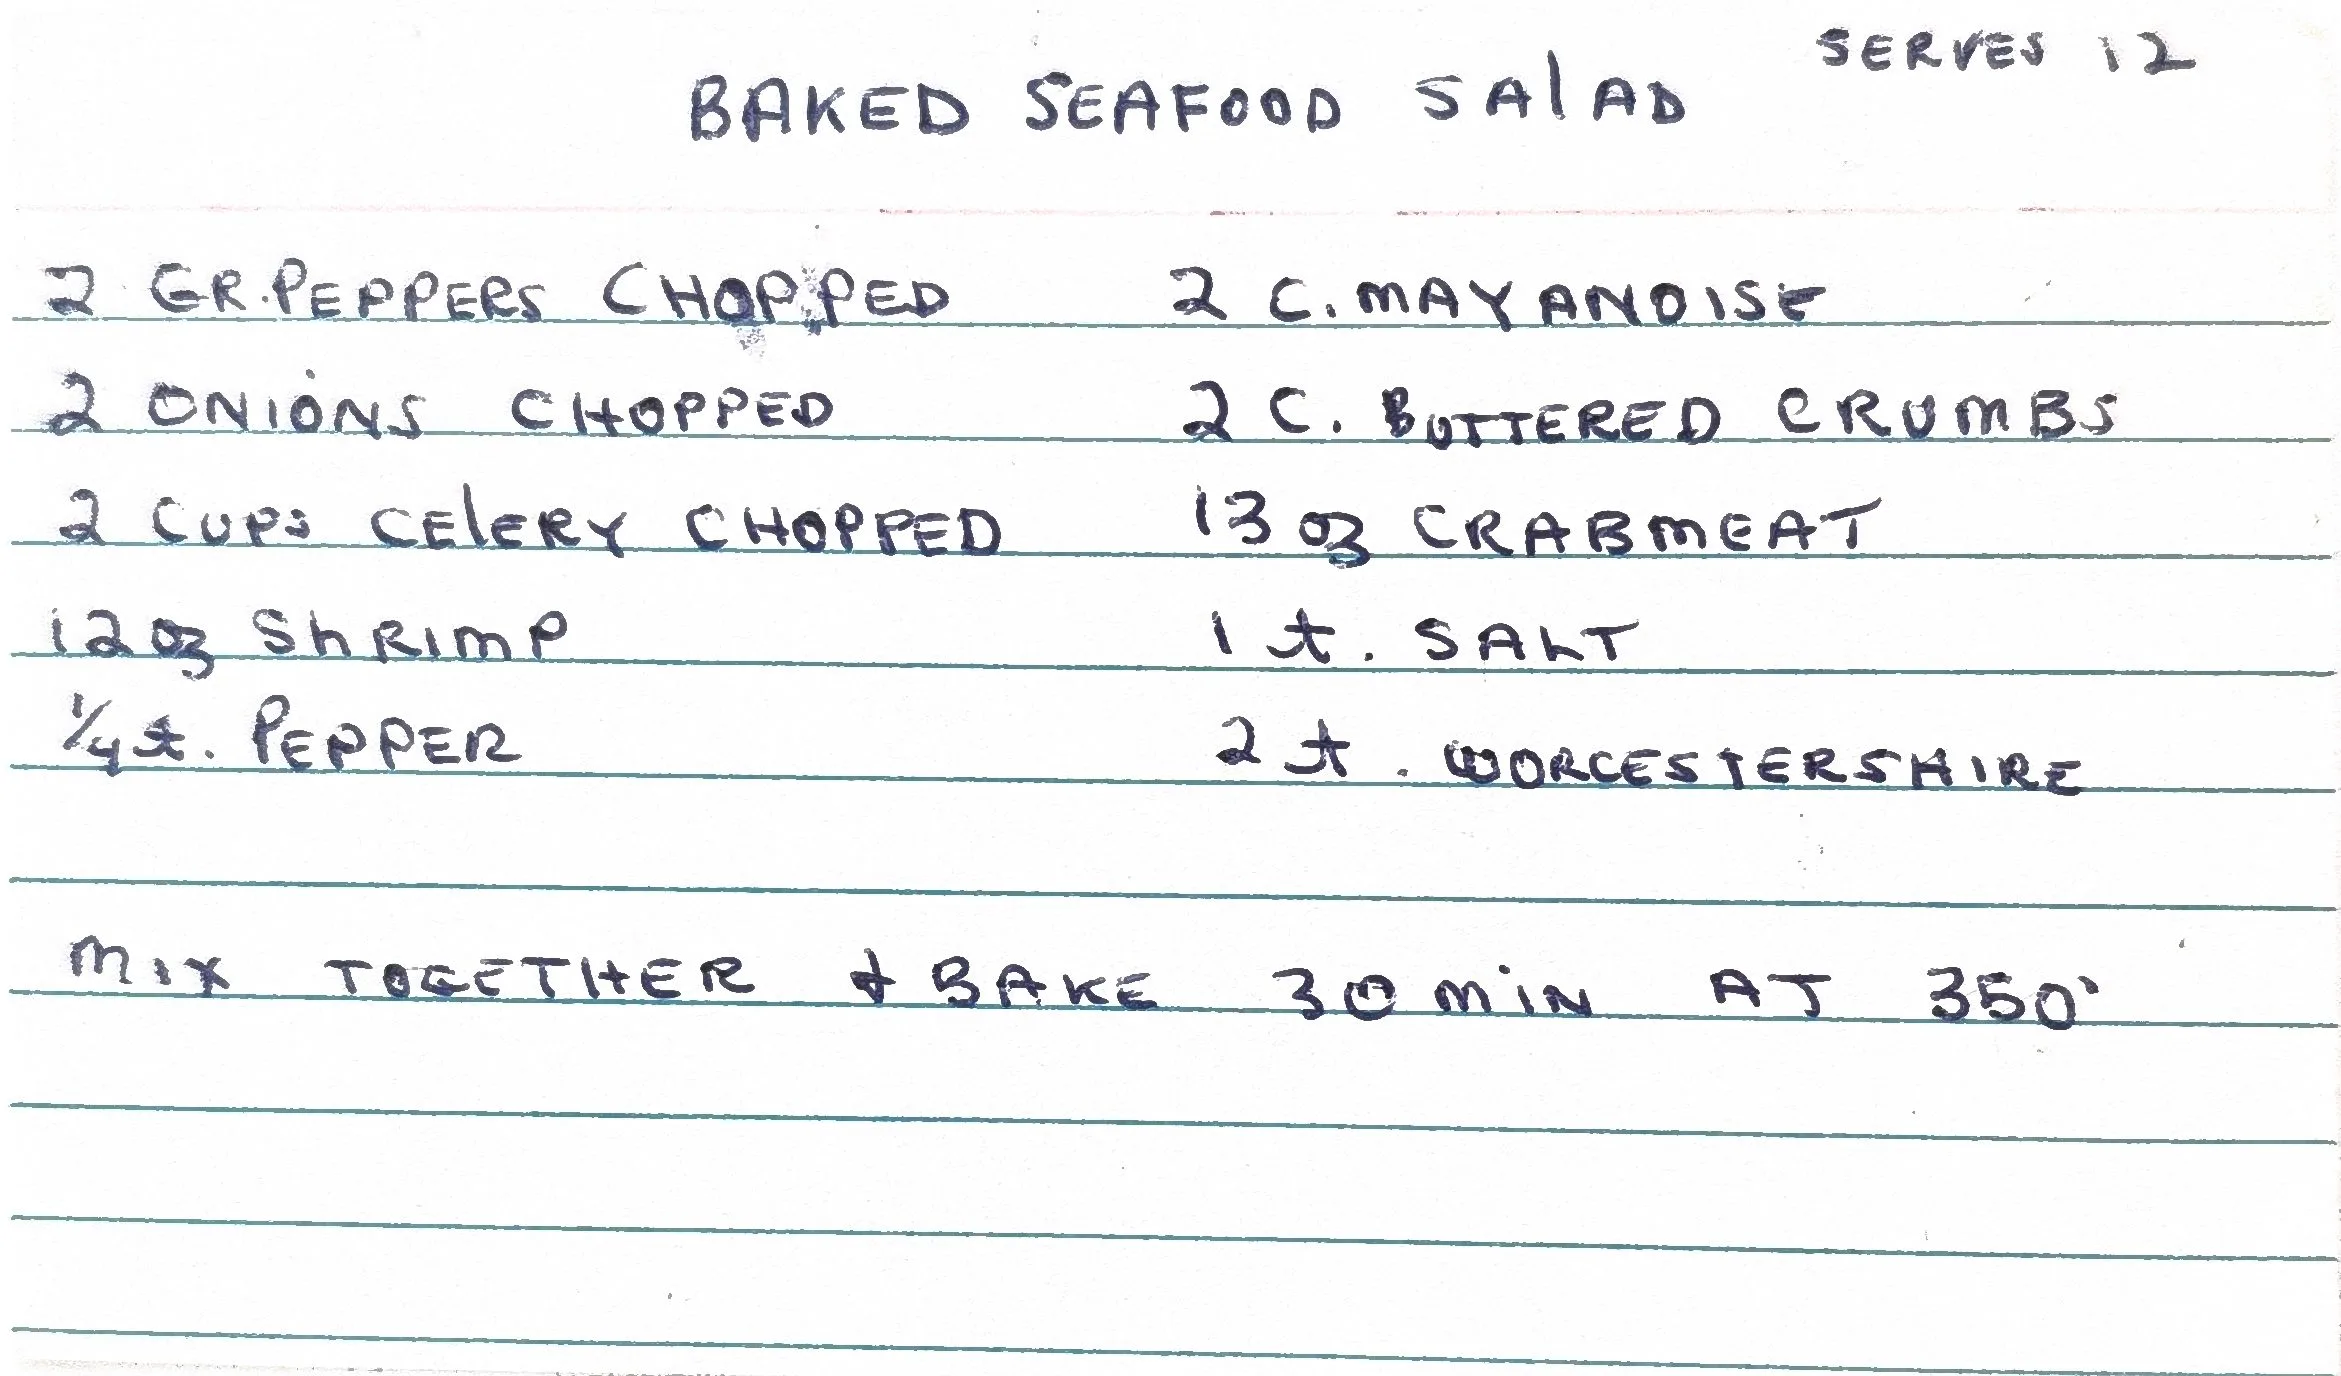 SERVES 12
BAKED SEAFOOD SAlAD
2 GR. PEPPERS CHOPPED
2 ONIONS CHOPPED
2 CUPS CElERY CHOPPED
12 oz ShRIMP
1/4 t. PEPPER
2 C. MAYANOISE
2 C. BUTTERED CRUMBS
13 oz CRABMEAT
1 t. SALT
2 t. WORCESTERSHIRE
MIX TOGETHER & BAKE 30 MiN AT 350°